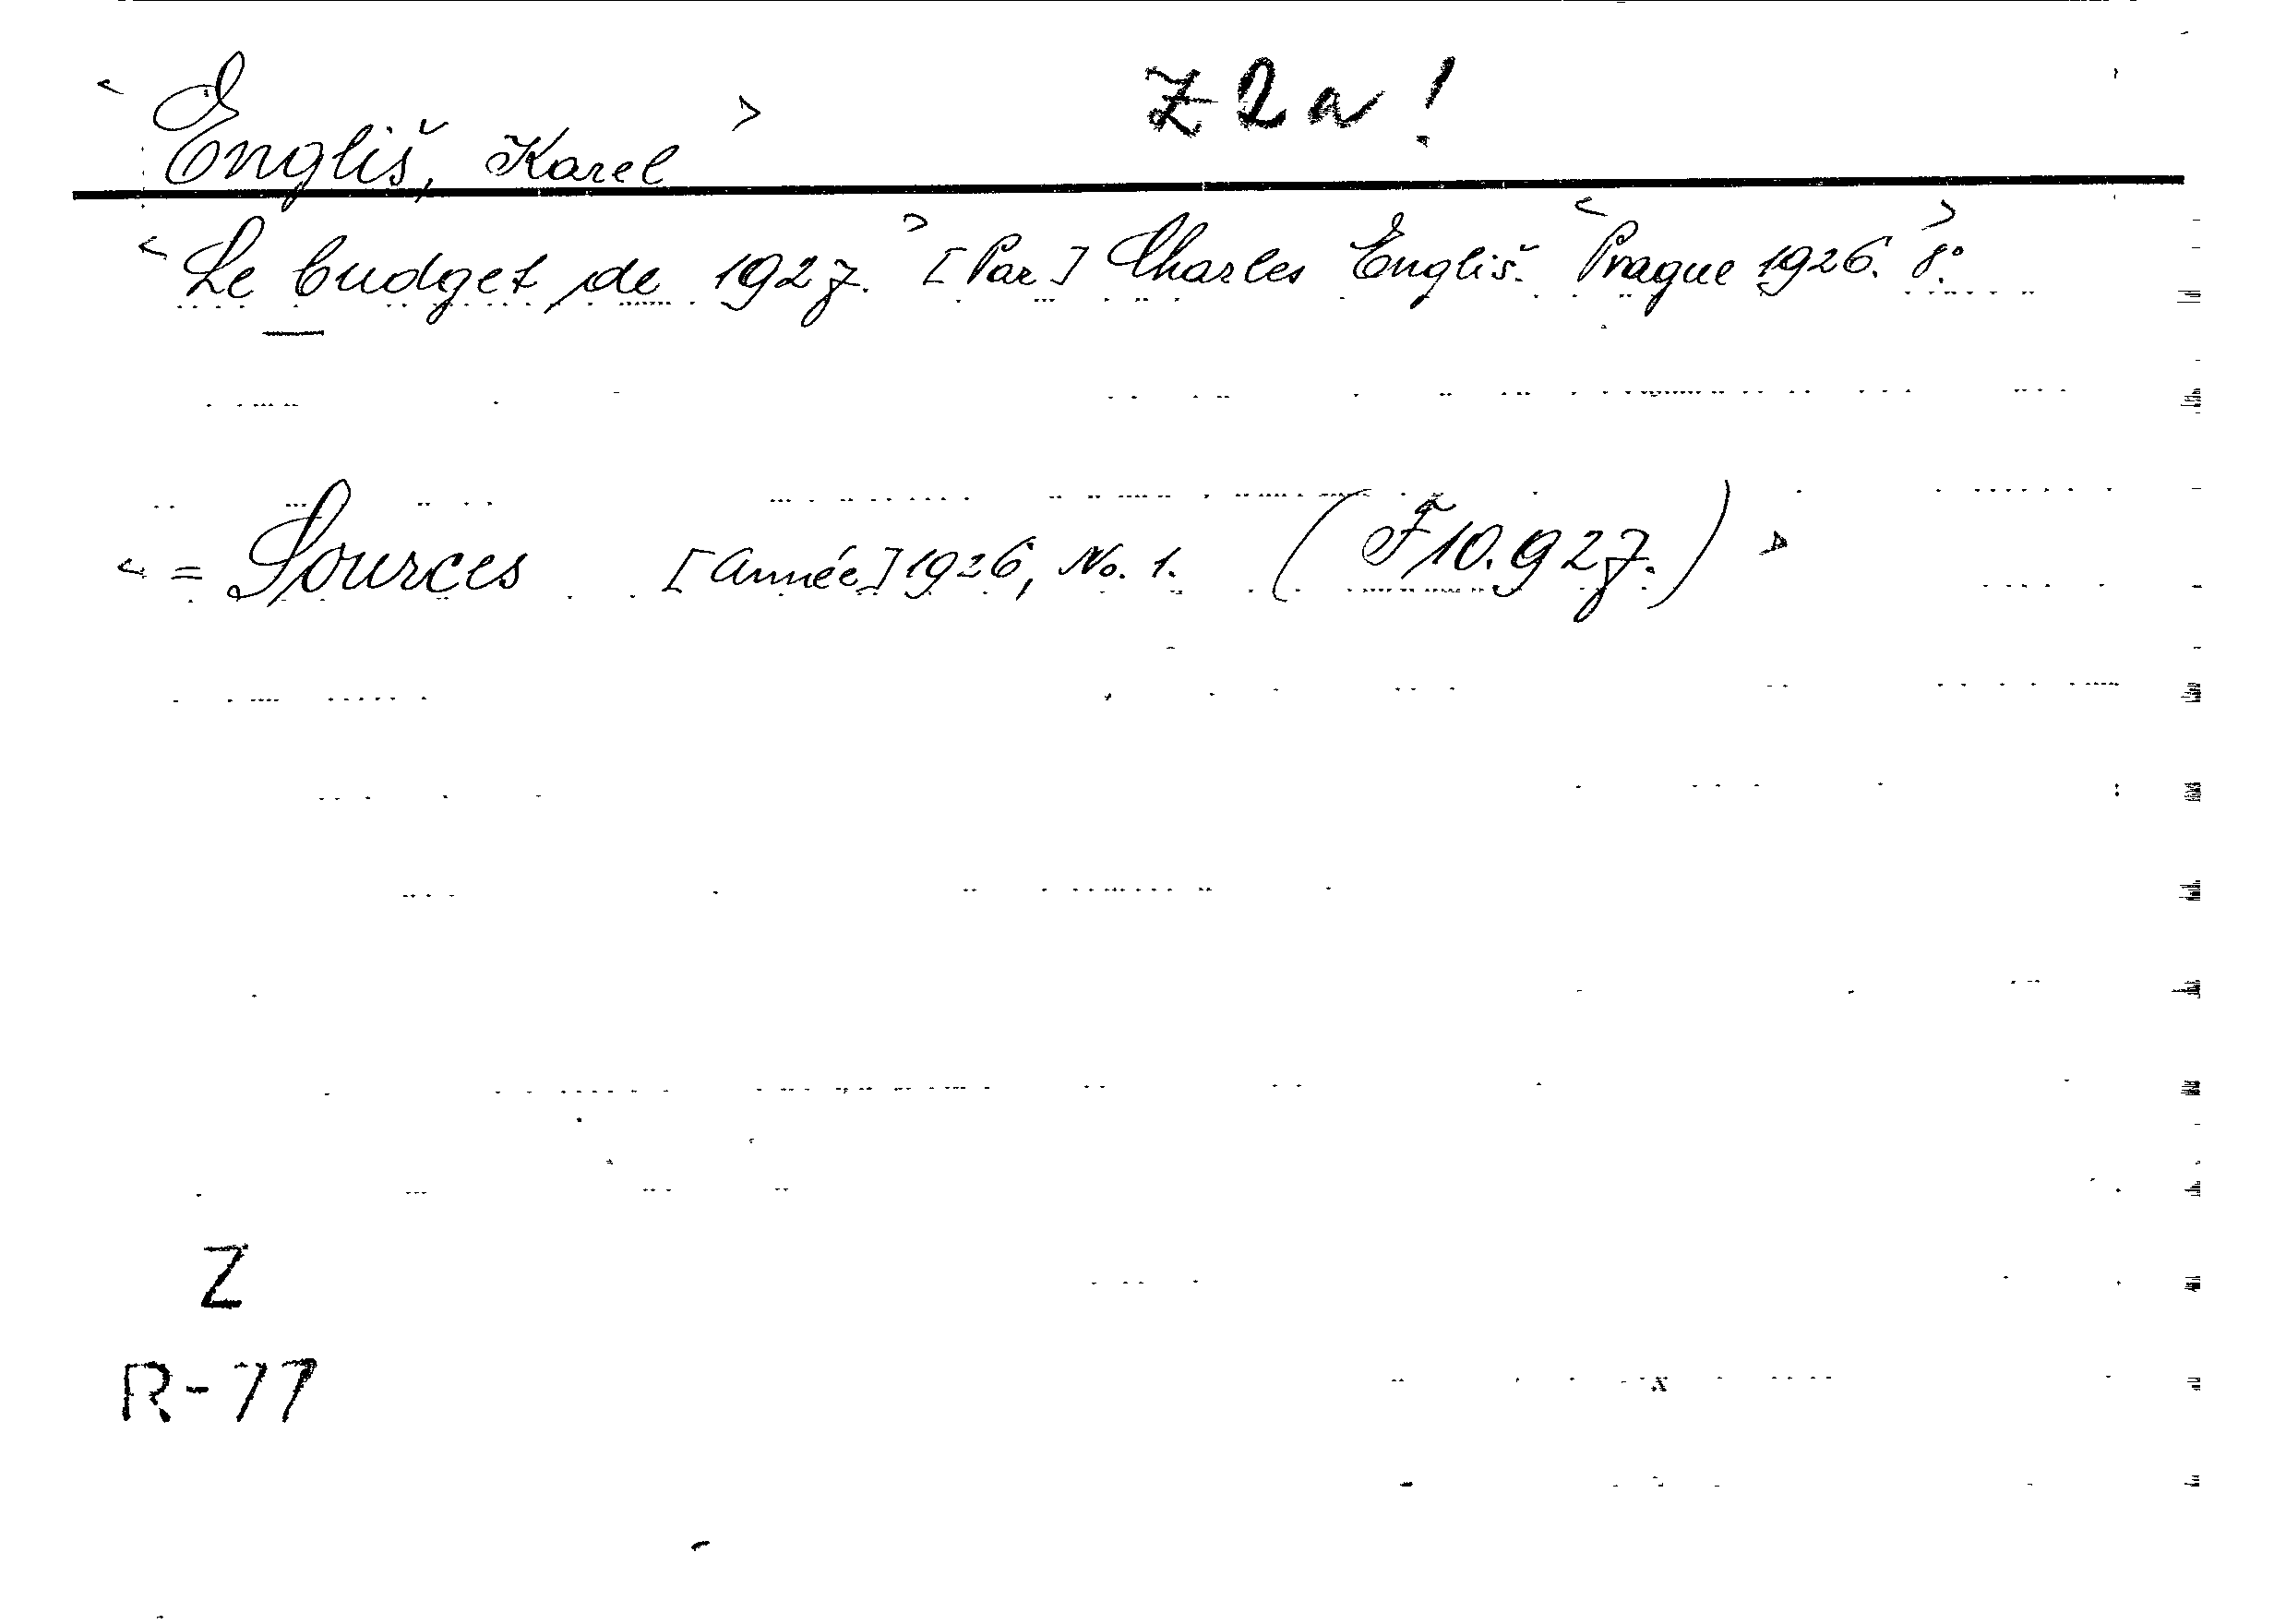 < Engliš, Karel > Z 2 a !
< Le budget de 1927. > [Par] Charles Engliš. < Prague 1926. > 8°.
< = Sources [Année] 1926, No. 1. (F 10.927.) >
Z
R-77